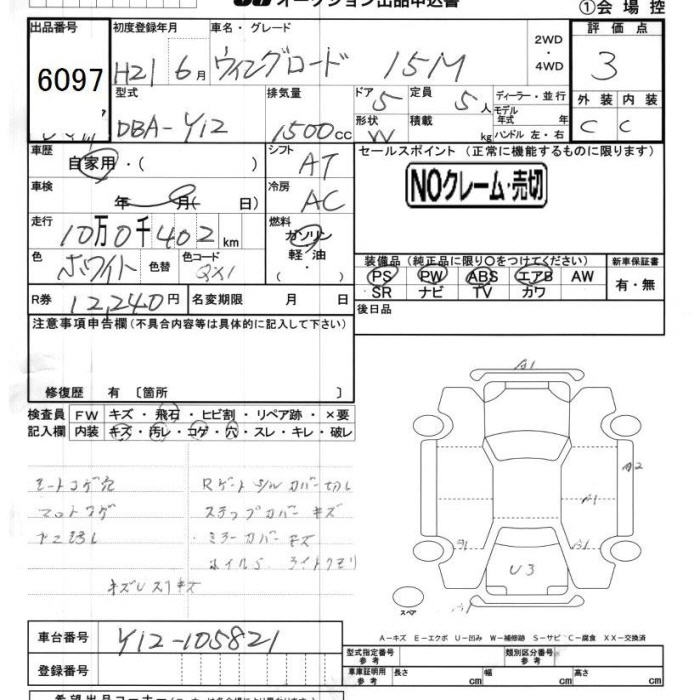 オークション出品申込書
①会場控
出品番号 初度登録年月 車名・グレード 評価点
6097 H21 6月 ウィングロード 15M 2WD・4WD 3
型式 排気量 ドア 5 定員 5人 ディーラー・並行 外装 内装
DBA-Y12 1500cc 形状 W 積載 kg モデル年式 年 ハンドル 左・右 C C
車歴 自家用・( ) シフト AT セールスポイント (正常に機能するものに限ります)
車検 年 月( 日) 冷房 AC NOクレーム・売切
走行 10万0千402km 燃料 ガソリン
色 ホワイト 色替 色コード QX1 軽油・( )
装備品 (純正品に限り○をつけてください) 新車保証書
PS PW ABS エアB AW 有・無
SR ナビ TV カワ
R券 12,240円 名変期限 月 日 後日品
注意事項申告欄 (不具合内容等は具体的に記入して下さい)
修復歴 有 〔箇所 〕
検査員 FW キズ・飛石・ヒビ割・リペア跡・×要
記入欄 内装 キズ・汚レ・コゲ・穴・スレ・キレ・破レ
シートコゲ穴 Rゲート シル カバー 切レ
マットコゲ ステップカバー キズ
ミラーカバー キズ
ホイルS ライトクモリ
A1
A2
A1
A1 A1
U3
A1
スペア
A-キズ E-エクボ U-凹み W-補修跡 S-サビ C-腐食 XX-交換済
車台番号 Y12-105821
登録番号
型式指定番号 参考 類別区分番号 参考
車庫証明用 参考 長さ cm 幅 cm 高さ cm